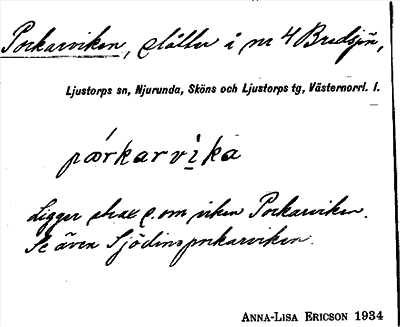 Porkarviken, slåtter i nr 4 Bredsjön,
Ljustorps sn, Njurunda, Sköns och Ljustorps tg, Västernorrl. l.
pærkarvika
Ligger strax ö. om viken Porkarviken.
Se även Sjödinsporkarviken.
ANNA-LISA ERICSON 1934